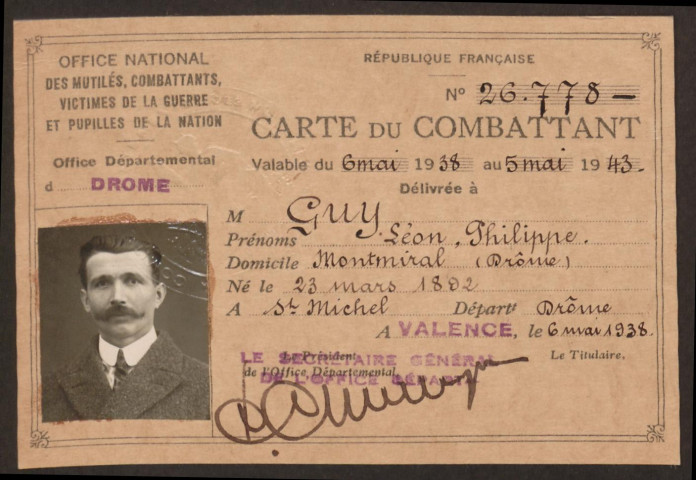 OFFICE NATIONAL
DES MUTILÉS, COMBATTANTS,
VICTIMES DE LA GUERRE
ET PUPILLES DE LA NATION
Office Départemental
d DROME
RÉPUBLIQUE FRANÇAISE
N° 26.778 —
CARTE DU COMBATTANT
Valable du 6 mai 1938 au 5 mai 1943.
Délivrée à
M GUY
Prénoms Léon, Philippe.
Domicile Montmiral (Drôme)
Né le 23 mars 1892
A St Michel Départt Drôme
A VALENCE, le 6 mai 1938.
Le Président
de l'Office Départemental,
LE SECRÉTAIRE GÉNÉRAL
DE L'OFFICE DÉPARTL
Le Titulaire.